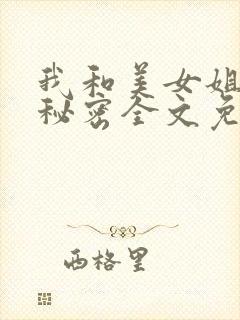 我和美女姐
秘密全文免
西格里